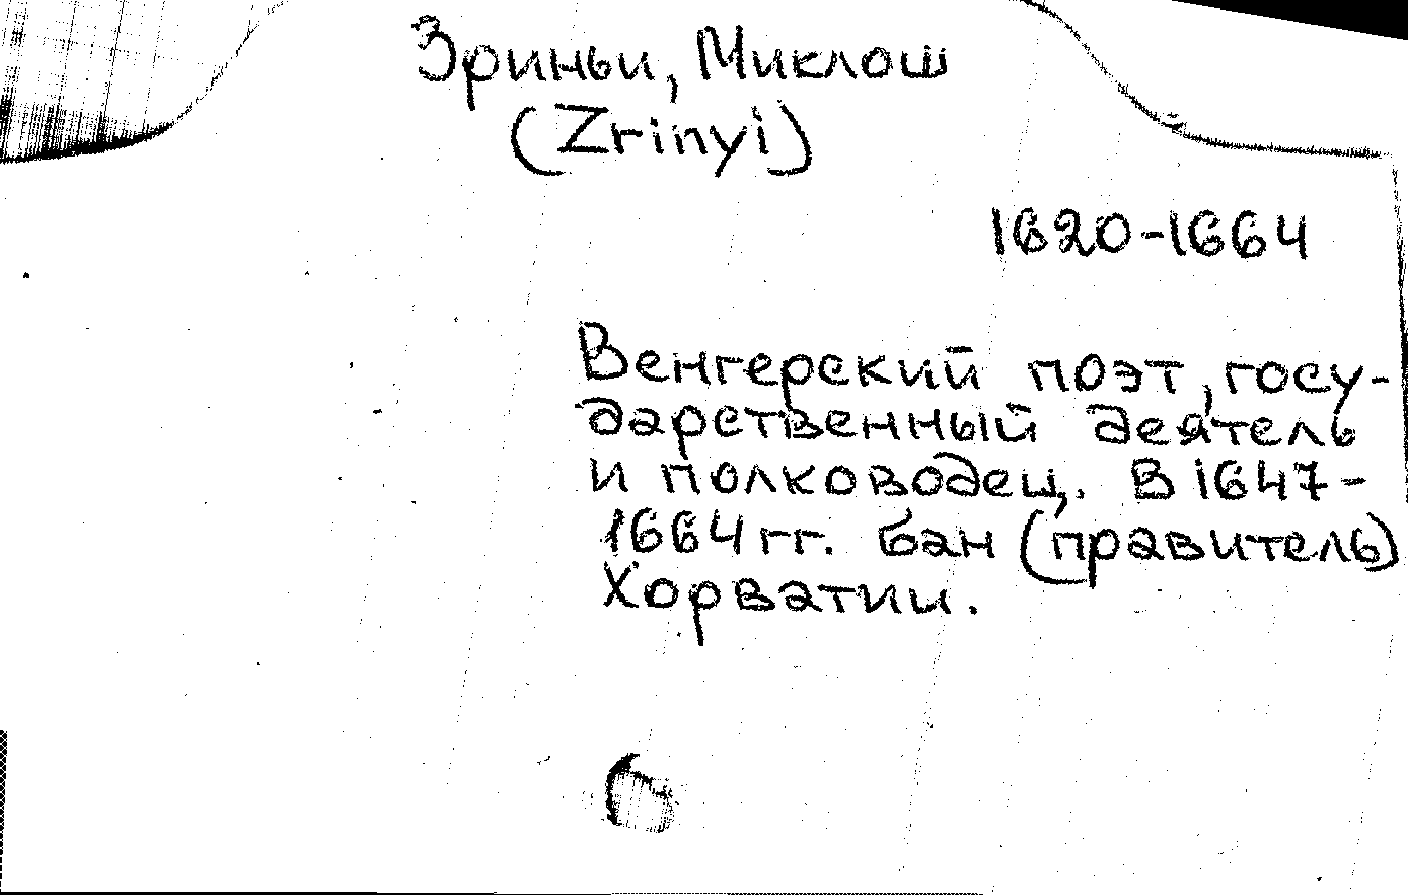 Зриньи, Миклош
(Zrinyi)
1620-1664
Венгерский поэт, госу-
дарственный деятель
и полководец. В 1647-
1664 гг. бан (правитель)
Хорватии.